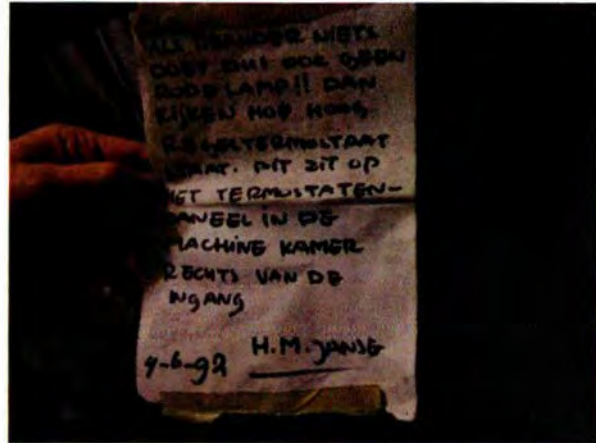 ALS BRANDER NIETS
DOET DUS OOK GEEN
RODE LAMP!! DAN
KIJKEN HOE HOOG
REGELTERMOSTAAT
STAAT. DIT ZIT OP
HET TERMOSTATEN-
PANEEL IN DE
MACHINE KAMER
RECHTS VAN DE
INGANG
H.M. JANSE
4-6-92